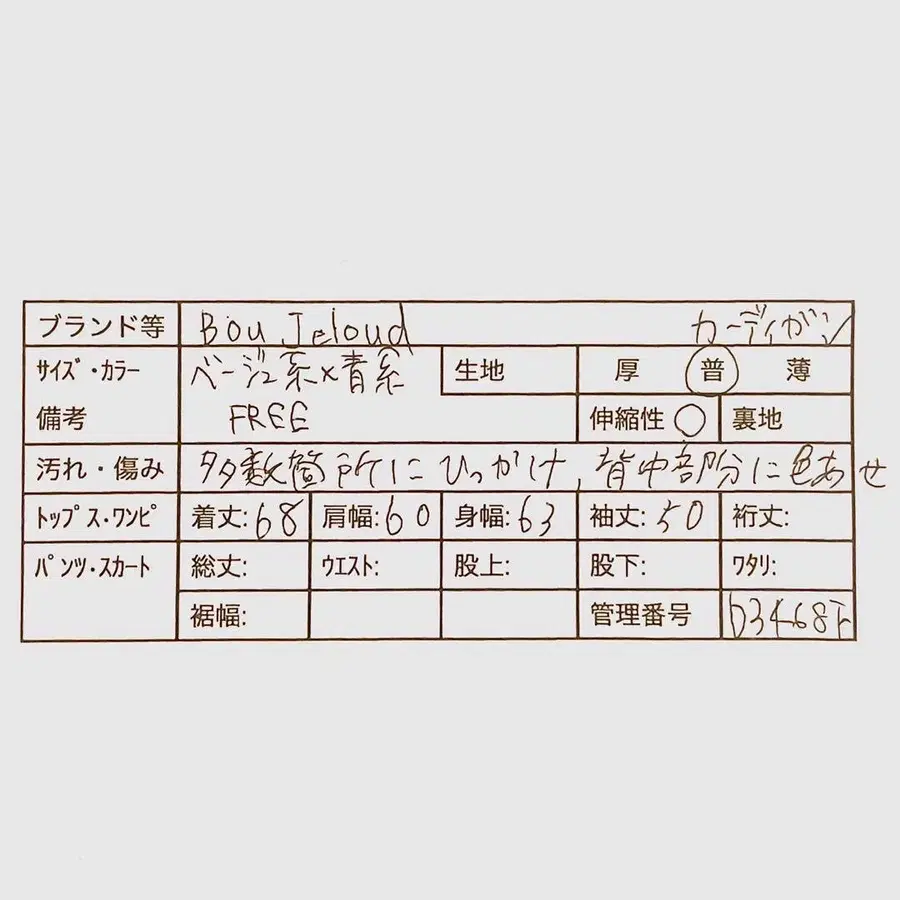 ブランド等 Bou Jeloud カーディガン
サイズ・カラー ベージュ系×青系 生地 厚 普 薄
備考 FREE 伸縮性 ○ 裏地
汚れ・傷み 多数箇所にひっかけ,背中部分に色あせ
トップス・ワンピ 着丈:68 肩幅:60 身幅:63 袖丈:50 裄丈:
パンツ・スカート 総丈: ウエスト: 股上: 股下: ワタリ:
裾幅: 管理番号 D3468F